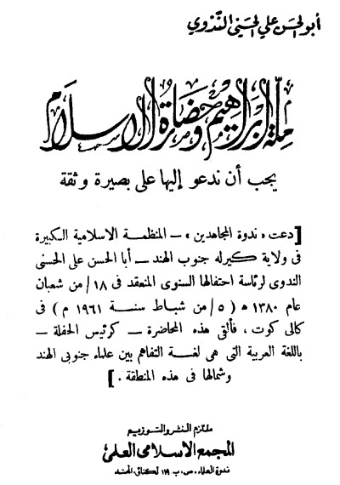 أبو الحسن علي الحسني الندوي
ملة إبراهيم وحضارة الإسلام
يجب أن ندعو إليها على بصيرة وثقة
[ دعت « ندوة المجاهدين » – المنظمة الاسلامية الكبيرة
فى ولاية كيرله جنوب الهند – أبا الحسن على الحسنى
الندوى لرئاسة احتفالها السنوى المنعقد فى ١٨/ من شعبان
عام ١٣٨٠ ه ( ٥/ من شباط سنة ١٩٦١ م ) فى
كالى كوت ، فألقى هذه المحاضرة – كرئيس الحفلة –
باللغة العربية التى هى لغة التفاهم بين علماء جنوبى الهند
وشمالها فى هذه المنطقة . ]
ملتزم النشر والتوزيع
المجمع الاسلامى العلمى
ندوة العلماء ، ص . ب ١١٩ لكناؤ ، الهند